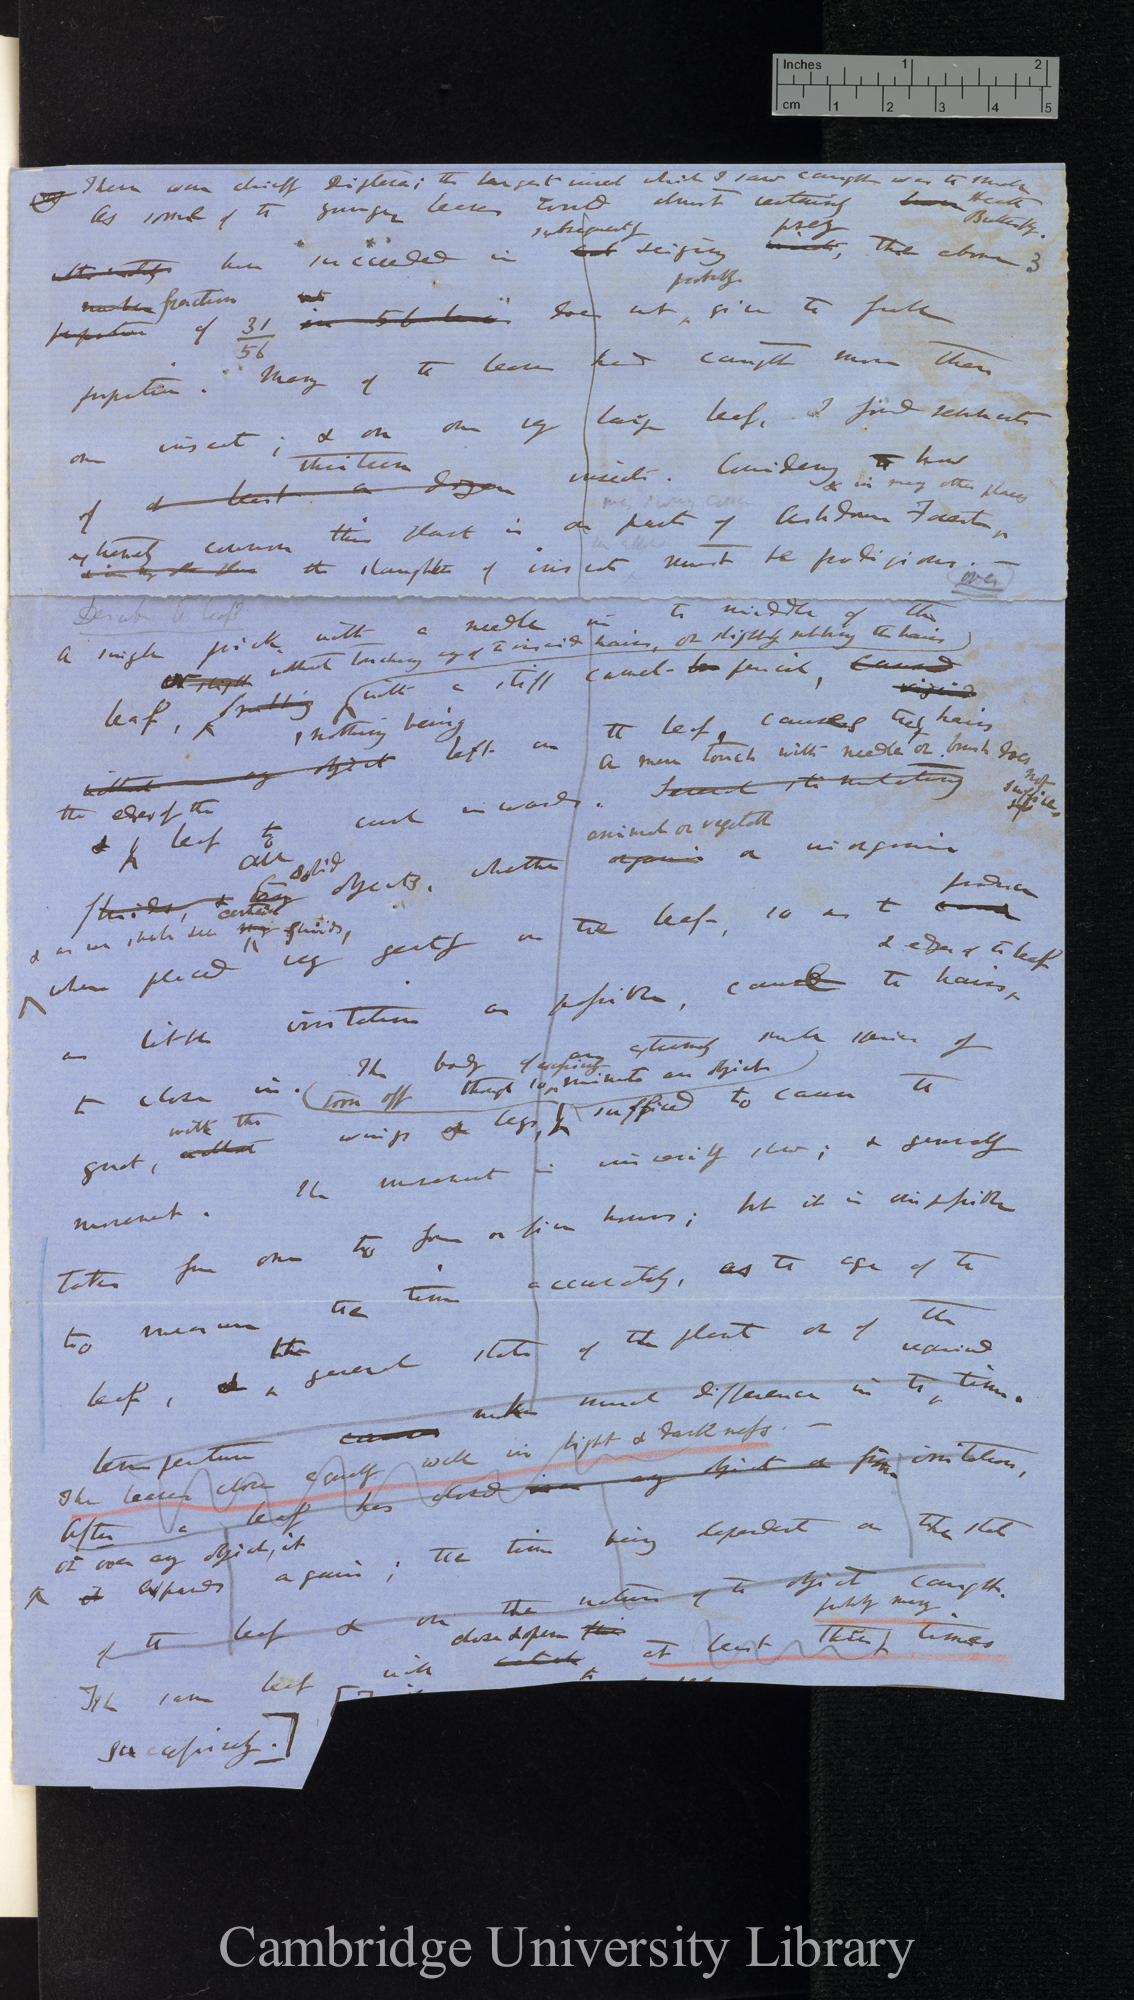 Inches 1 2
cm 1 2 3 4 5
There were chiefly Diptera; the largest insect which I saw caught was the small Heath Butterfly.
As some of the younger leaves would almost certainly
have succeeded in subsequently seizing prey, the above
3
fraction of 31/56 does not probably give the full
proportion. Many of the leaves had caught more than
one insect; & on one very large leaf, I found remnants
of thirteen insects. Considering how
& in many other places
extremely common this plant is on parts of Ashdown Forest,
the slaughter of insects must be prodigious. —
over
Describe the leaf
A single prick with a needle in the middle of the
without touching any of the viscid hairs, or slightly rubbing the hairs
leaf, with a stiff camel- pencil,
nothing being left on the leaf, causes the hairs
A mere touch with needle or brush does not suffice
the edges of the
& leaf to curl inwards.
animal or vegetable
All solid objects, whether or inorganic
& as we shall see certain fluids,
when placed very gently on the leaf, so as to produce
& edges of the leaf
as little irritation as possible, cause the hairs
to close in. The body of an extremely small species of
torn off though so minute an object
gnat, with the wings & legs, sufficed to cause the
movement. The movement is generally slow; & generally
takes from one to four or five hours; but it is impossible
to measure the time accurately, as the age of the
leaf, the general state of the plant or of the
temperature makes much difference in the required time.
The leaves close equally well in light & darkness. —
After a leaf has closed from irritation,
or over any object, it
expands again; the time being dependent on the state
of the leaf & on the nature of the object caught.
probably many
The same leaf will close & open at least three times
successively.]
Cambridge University Library